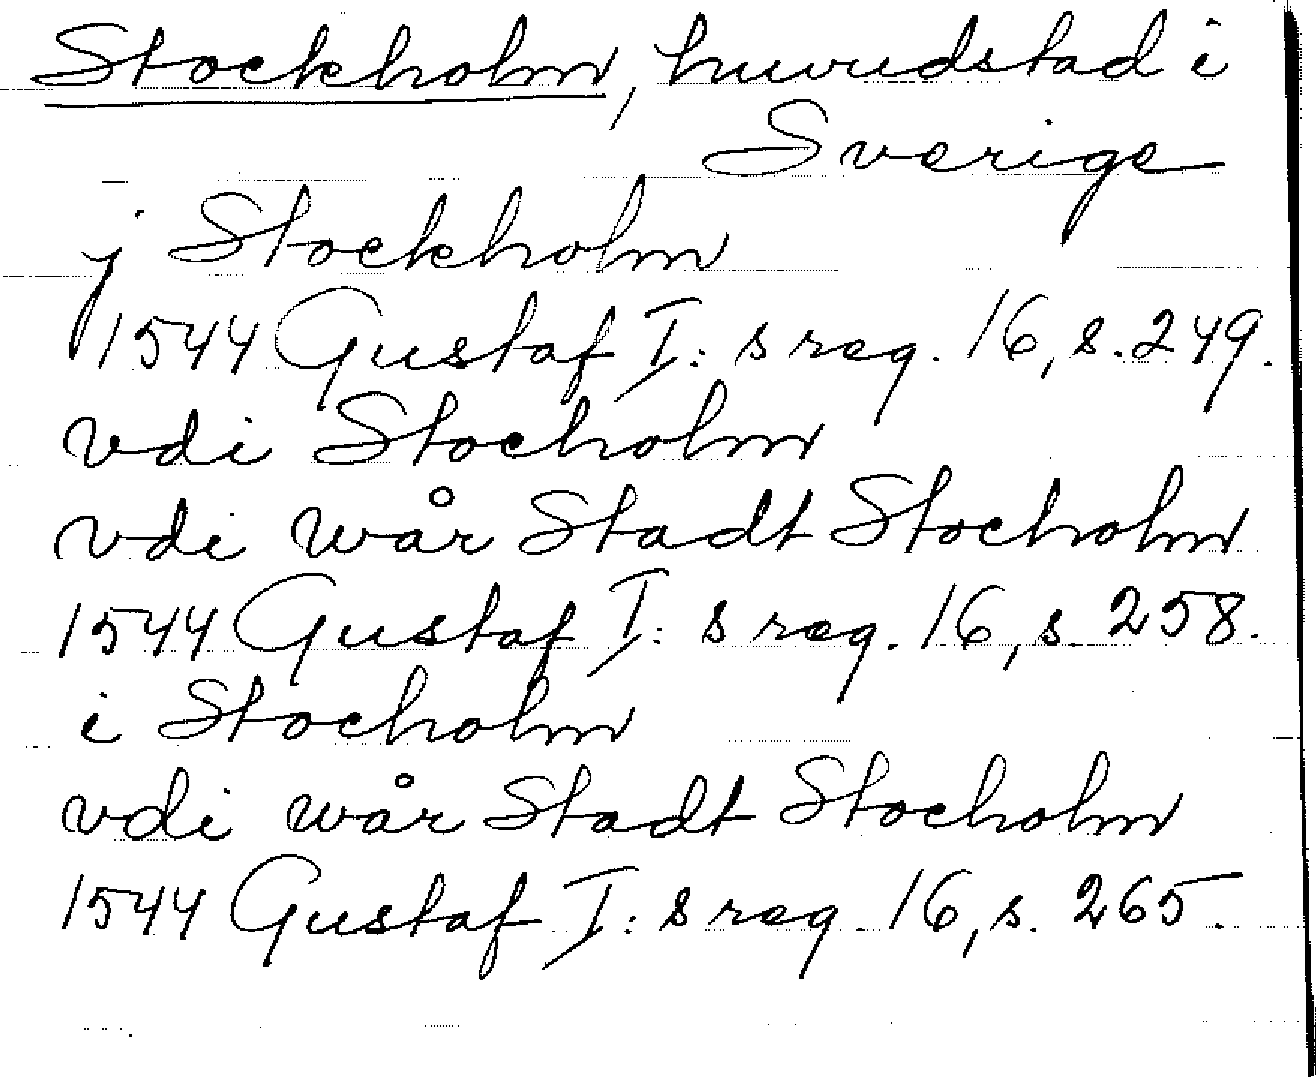 Stockholm, huvudstad i
Sverige
j Stockholm
1544 Gustaf I: s reg. 16, s. 249.
vdi Stocholm
vdi wår Stadt Stocholm
1544 Gustaf I: s reg. 16, s. 258.
i Stocholm
vdi wår Stadt Stocholm
1544 Gustaf I: s reg 16, s. 265.